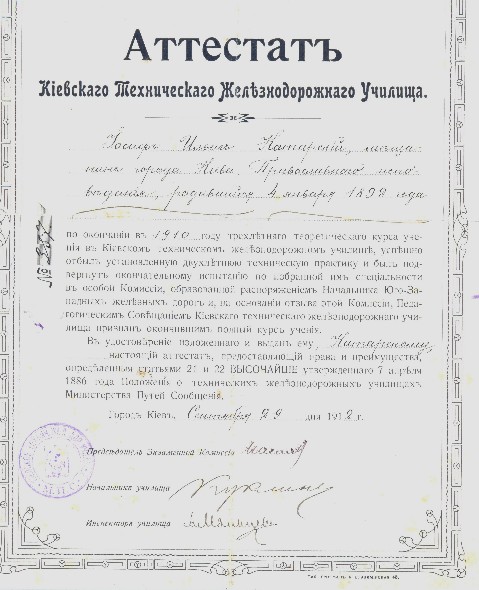 Аттестатъ
Кіевскаго Техническаго Желѣзнодорожнаго Училища.
Іосифъ Ильичъ Катарскій, мѣща-
нинъ города Кіева, Православнаго испо-
вѣданія, родившійся 4 января 1892 года
№
по окончаніи въ 1910 году трехлѣтняго теоретическаго курса уче-
нія въ Кіевскомъ техническомъ желѣзнодорожномъ училищѣ, успѣшно
отбылъ установленную двухлѣтнюю техническую практику и былъ под-
вергнутъ окончательному испытанію по избранной имъ спеціальности
въ особой Комиссіи, образованной распоряженіемъ Начальника Юго-За-
падныхъ желѣзныхъ дорогъ и, на основаніи отзыва этой Комиссіи, Педа-
гогическимъ Совѣщаніемъ Кіевскаго техническаго желѣзнодорожнаго учи-
лища признанъ окончившимъ полный курсъ ученія.
Въ удостовѣреніе изложеннаго и выданъ ему, Катарскому,
настоящій аттестатъ, предоставляющій права и преимущества,
опредѣленныя статьями 21 и 22 ВЫСОЧАЙШЕ утвержденнаго 7 апрѣля
1886 года Положенія о техническихъ желѣзнодорожныхъ училищахъ
Министерства Путей Сообщенія.
Городъ Кіевъ, Сентября 29 дня 1912 г.
Предсѣдатель Экзаменной Комиссіи
Начальникъ училища
Инспекторъ училища